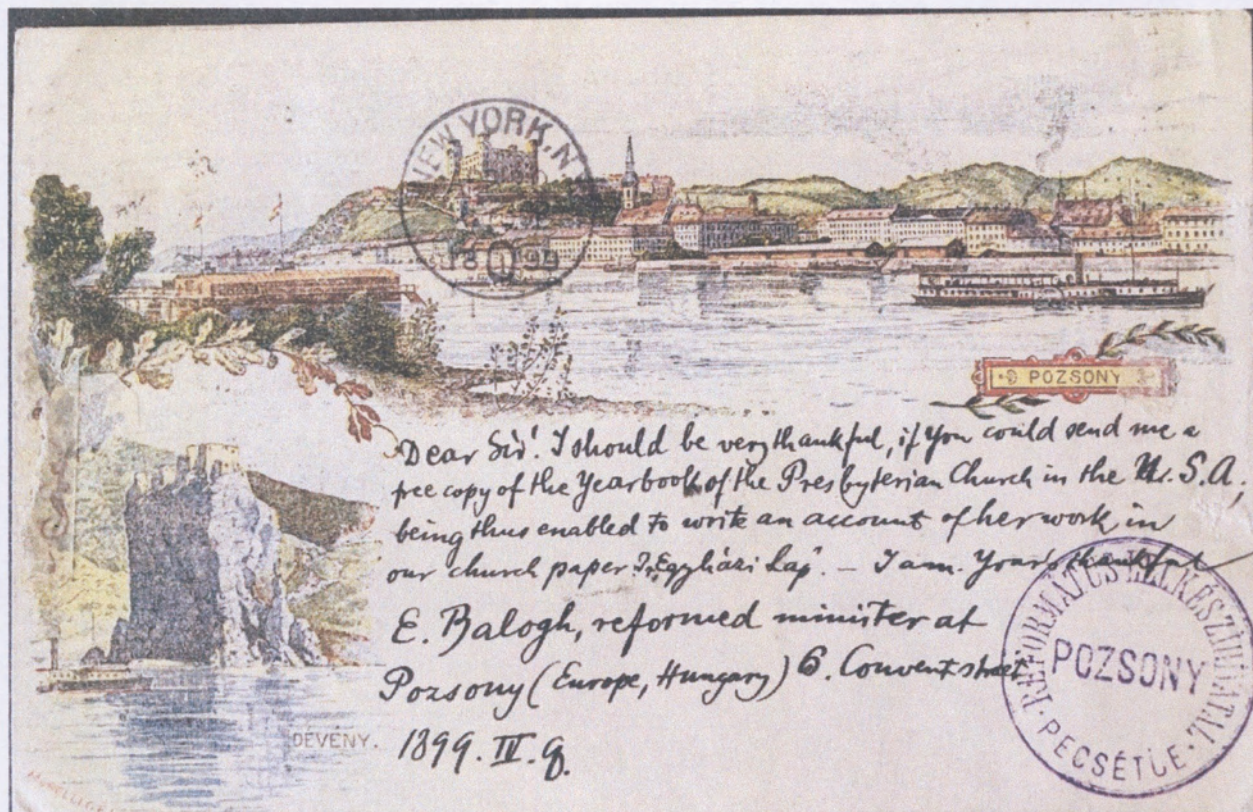 NEW YORK, N.
POZSONY
Dear Sir! I should be very thankful, if you could send me a
free copy of the Yearbook of the Presbyterian Church in the U. S. A.,
being thus enabled to write an account of her work in
our church paper: Egyházi Lap". – I am. Yours thankful
E. Balogh, reformed minister at
Pozsony (Europe, Hungary) 6. Convent street
1899. IV. 9.
DÉVÉNY.
REFORMÁTUS LELKÉSZI HIVATAL
POZSONY
PECSÉTJE